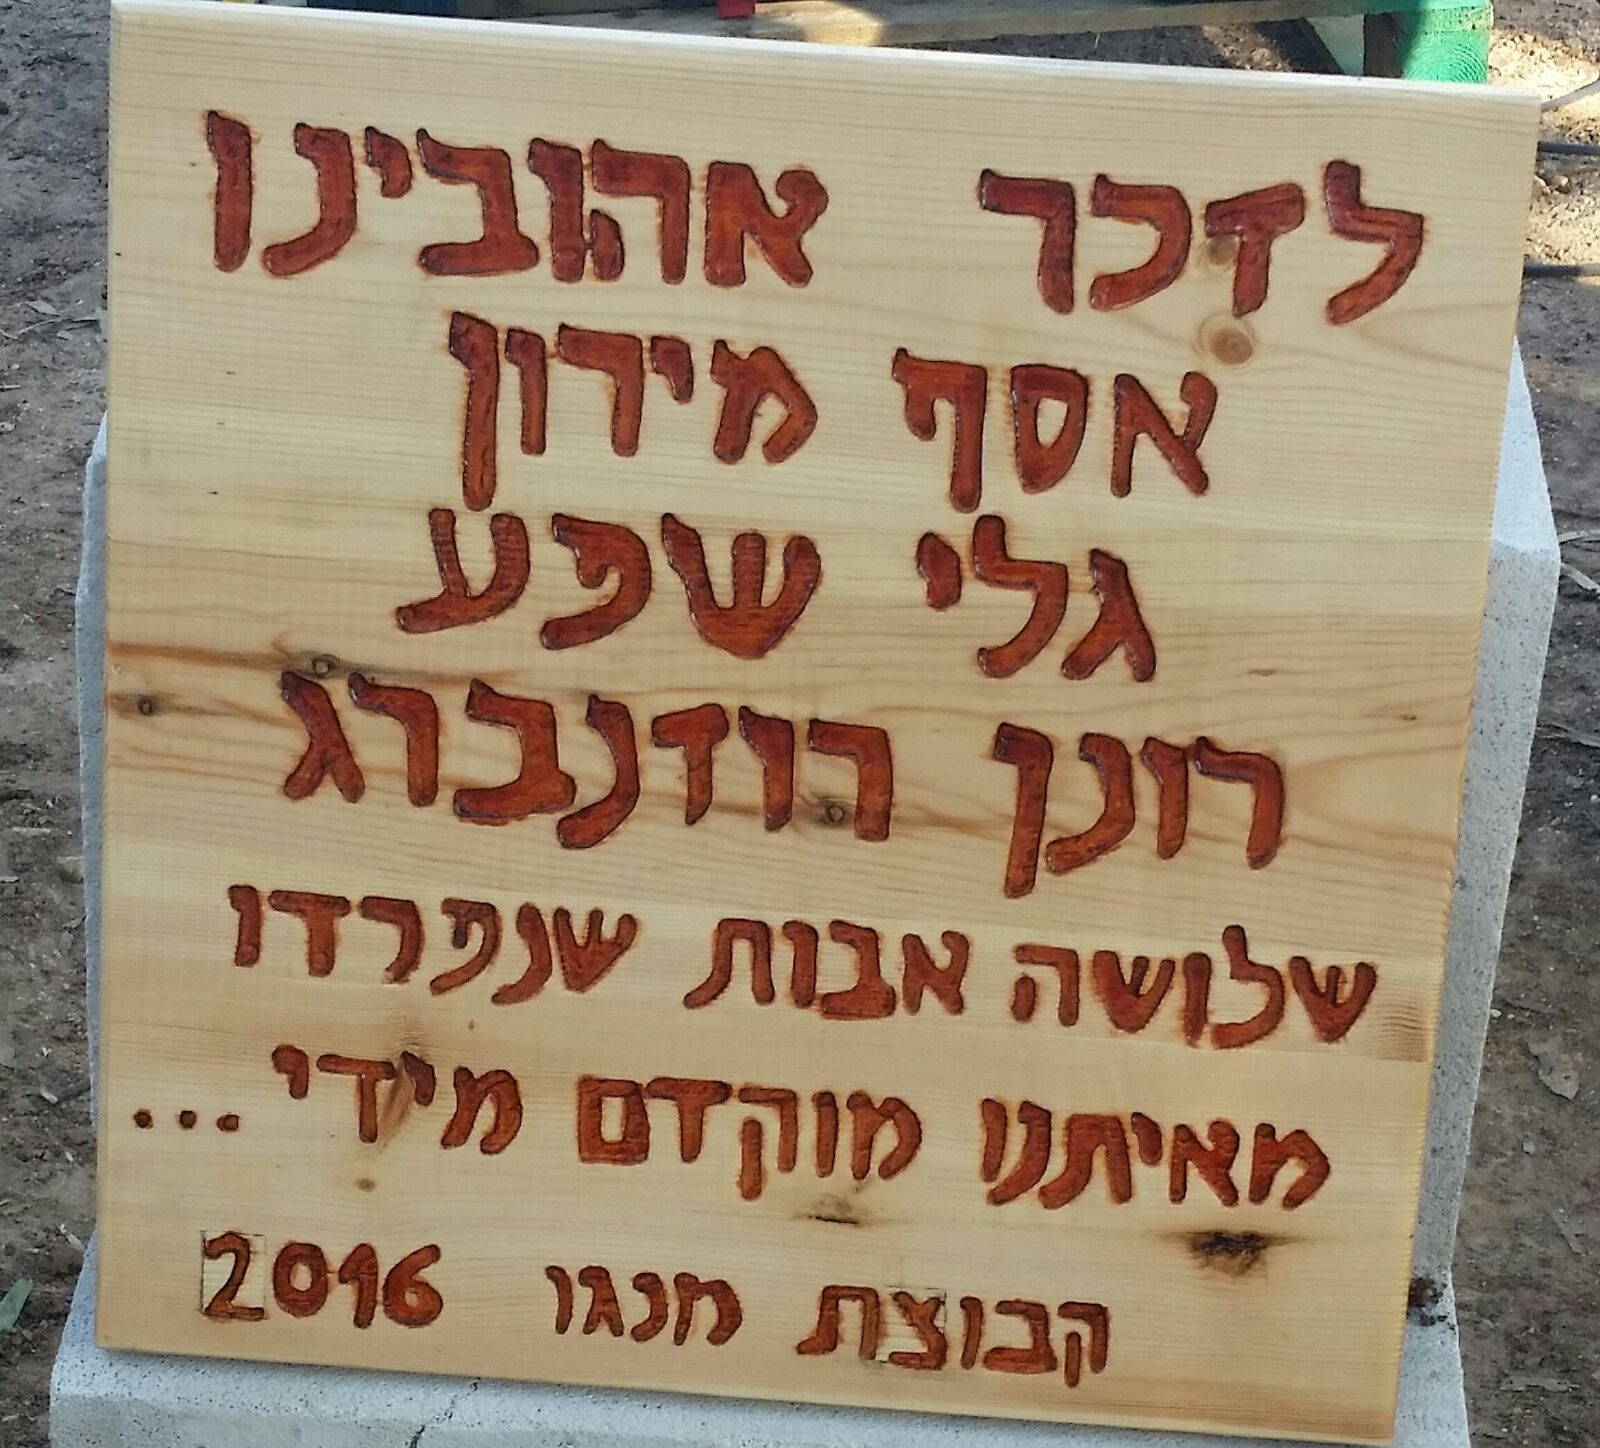 לזכר אהובינו
אסף מירון
גלי שפע
רונן רוזנברג
שלושה אבות שנפרדו
מאיתנו מוקדם מידי ...
קבוצת מנגו 2016